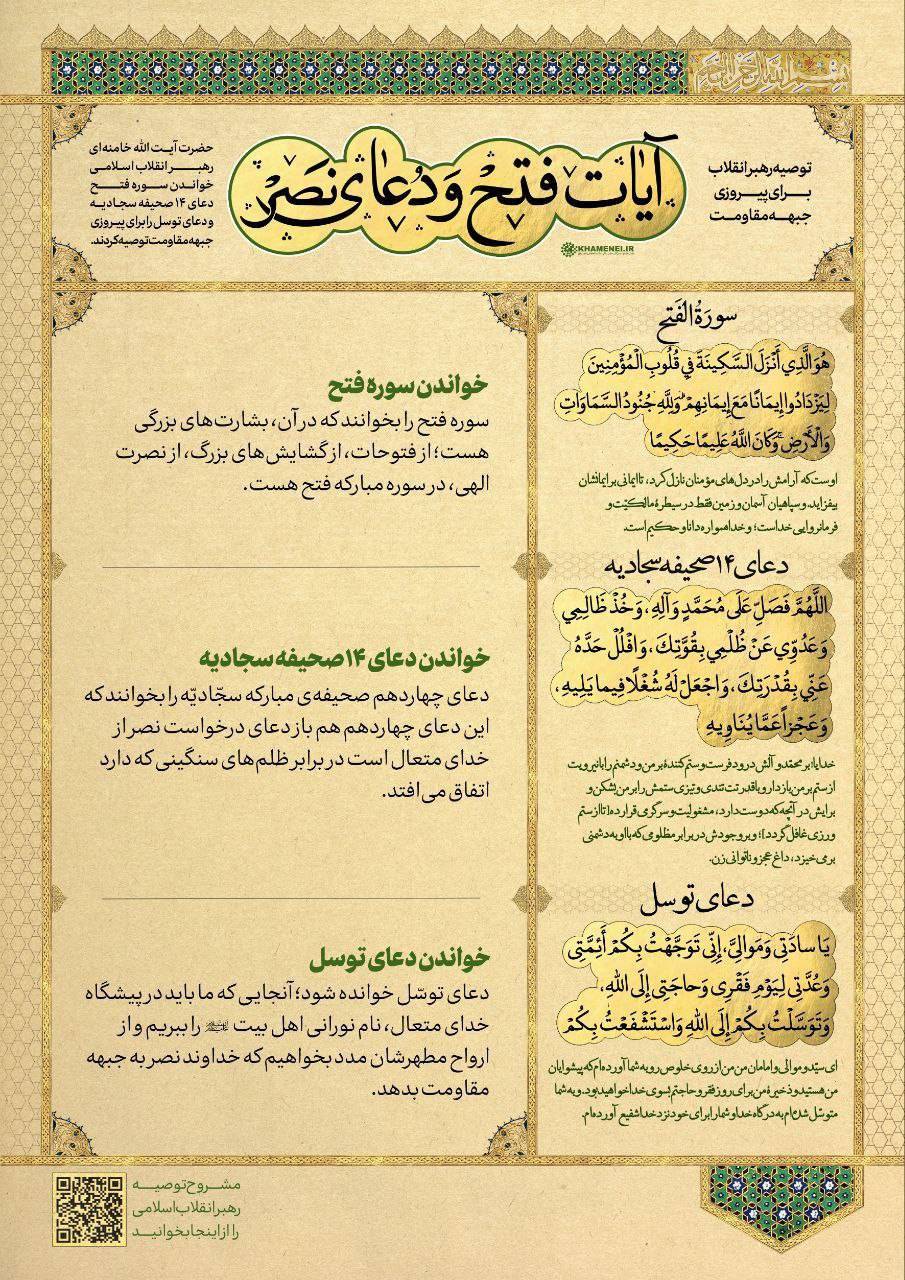 بسم الله الرحمن الرحیم
توصیه رهبر انقلاب
برای پیروزی
جبهه مقاومت
آیات فتح و دُعای نَصر
KHAMENEI.IR
حضرت آیت الله خامنه‌ای
رهبر انقلاب اسلامی
خواندن سوره فتح
دعای ۱۴ صحیفه سجادیه
و دعای توسل را برای پیروزی
جبهه مقاومت توصیه کردند.
سورَةُ الفَتح
هُوَ الَّذِي أَنْزَلَ السَّكِينَةَ فِي قُلُوبِ الْمُؤْمِنِينَ
لِيَزْدَادُوا إِيمَانًا مَعَ إِيمَانِهِمْ ۗ وَلِلَّهِ جُنُودُ السَّمَاوَاتِ
وَالْأَرْضِ ۚ وَكَانَ اللَّهُ عَلِيمًا حَكِيمًا
اوست که آرامش را در دل‌های مؤمنان نازل کرد، تا ایمانی بر ایمانشان
بیفزاید. و سپاهیان آسمان و زمین فقط در سیطرهٔ مالکیّت و
فرمانروایی خداست؛ و خدا همواره دانا و حکیم است.
دعای ۱۴ صحیفه سجادیه
اللَّهُمَّ فَصَلِّ عَلَى مُحَمَّدٍ وَآلِهِ، وَخُذْ ظَالِمِي
وَعَدُوِّي عَنْ ظُلْمِي بِقُوَّتِكَ، وَافْلُلْ حَدَّهُ
عَنِّي بِقُدْرَتِكَ، وَاجْعَلْ لَهُ شُغْلًا فِيمَا يَلِيهِ،
وَعَجْزاً عَمَّا يُنَاوِيهِ
خدایا! بر محمّد و آلش درود فرست و ستم کنندهٔ بر من و دشمنم را با نیرویت
از ستم بر من بازدار و با قدرتت تندی و تیزی ستمش را بر من بشکن و
برایش در آنچه که دوست دارد، مشغولیت و سرگرمی قرار ده [تا از ستم
ورزی غافل گردد]؛ و بر وجودش در برابر مظلومی که با او به دشمنی
برمی‌خیزد، داغ عجز و ناتوانی زن.
دعای توسل
يَا سادَتِى وَمَوالِىَّ، إِنِّى تَوَجَّهْتُ بِكُمْ أَئِمَّتِى
وَعُدَّتِى لِيَوْمِ فَقْرِى وَحاجَتِى إِلَى اللهِ،
وَتَوَسَّلْتُ بِكُمْ إِلَى اللهِ وَاسْتَشْفَعْتُ بِكُمْ
ای سیّد و موالی و امامان من من از روی خلوص رو به شما آورده‌ام که پیشوایان
من هستید و ذخیرهٔ من برای روز فقر و حاجتم بسوی خدا خواهید بود. و به شما
متوسّل شده‌ام به درگاه خدا و شما را برای خود نزد خدا شفیع آورده‌ام.
خواندن سوره فتح
سوره فتح را بخوانند که در آن، بشارت‌های بزرگی
هست؛ از فتوحات، از گشایش‌های بزرگ، از نصرت
الهی، در سوره مبارکه فتح هست.
خواندن دعای ۱۴ صحیفه سجادیه
دعای چهاردهم صحیفه‌ی مبارکه سجّادیّه را بخوانند که
این دعای چهاردهم هم باز دعای درخواست نصر از
خدای متعال است در برابر ظلم‌های سنگینی که دارد
اتفاق می‌افتد.
خواندن دعای توسل
دعای توسّل خوانده شود؛ آنجایی که ما باید در پیشگاه
خدای متعال، نام نورانی اهل بیت را ببریم و از
ارواح مطهرشان مدد بخواهیم که خداوند نصر به جبهه
مقاومت بدهد.
مشروح توصیه
رهبر انقلاب اسلامی
را از اینجا بخوانید